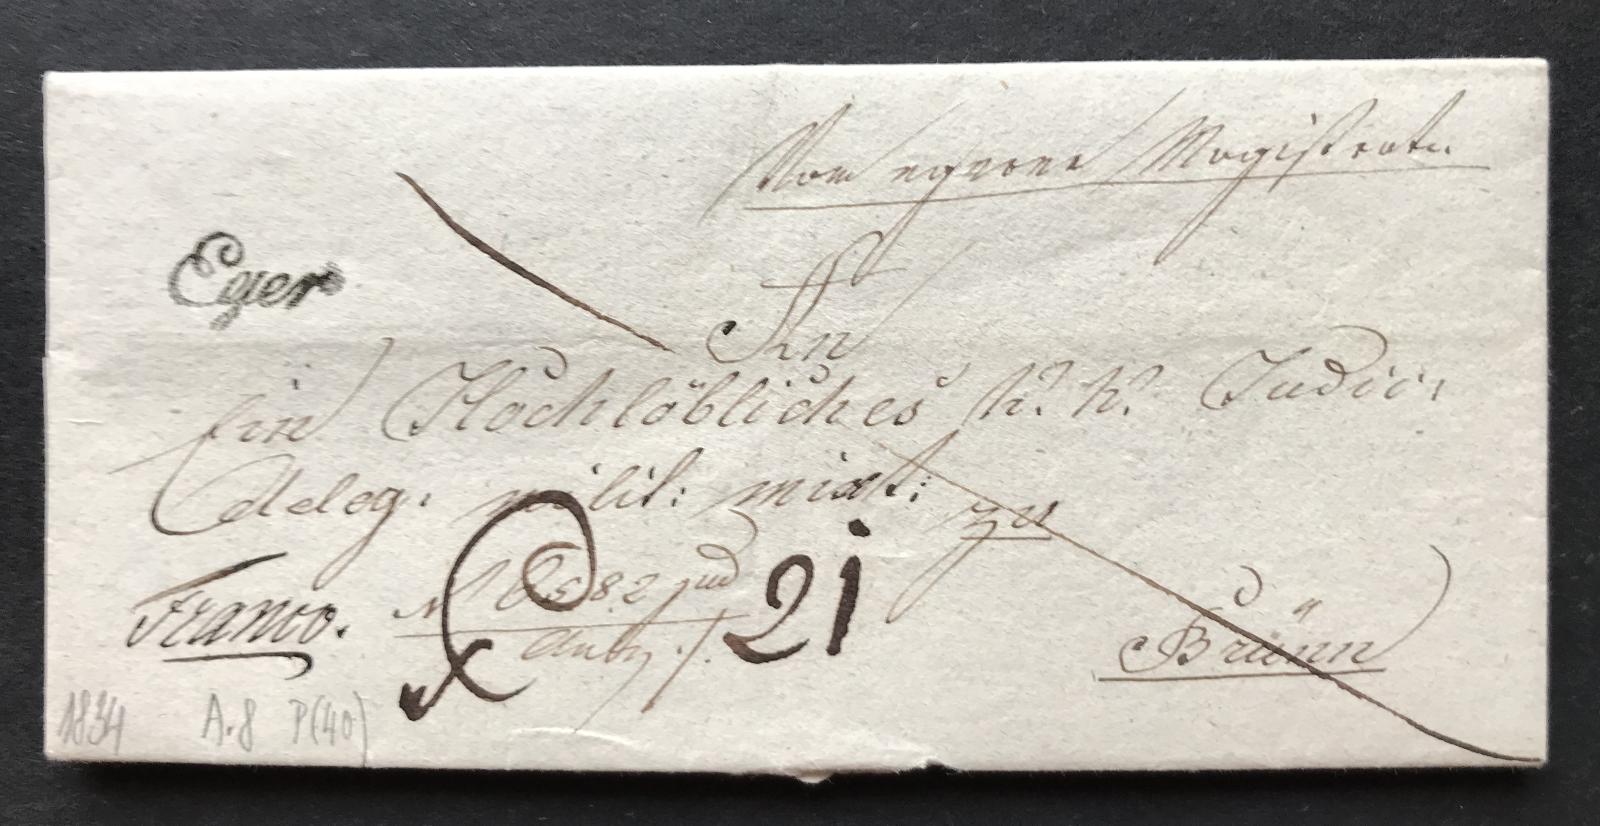 Vom egerer Magistrate.
Eger
An
Ein Hochlöbliches k. k. Judic:
deleg: milit: mixt: zu
Franco.
21
Brünn
1834 A.8 P(40)